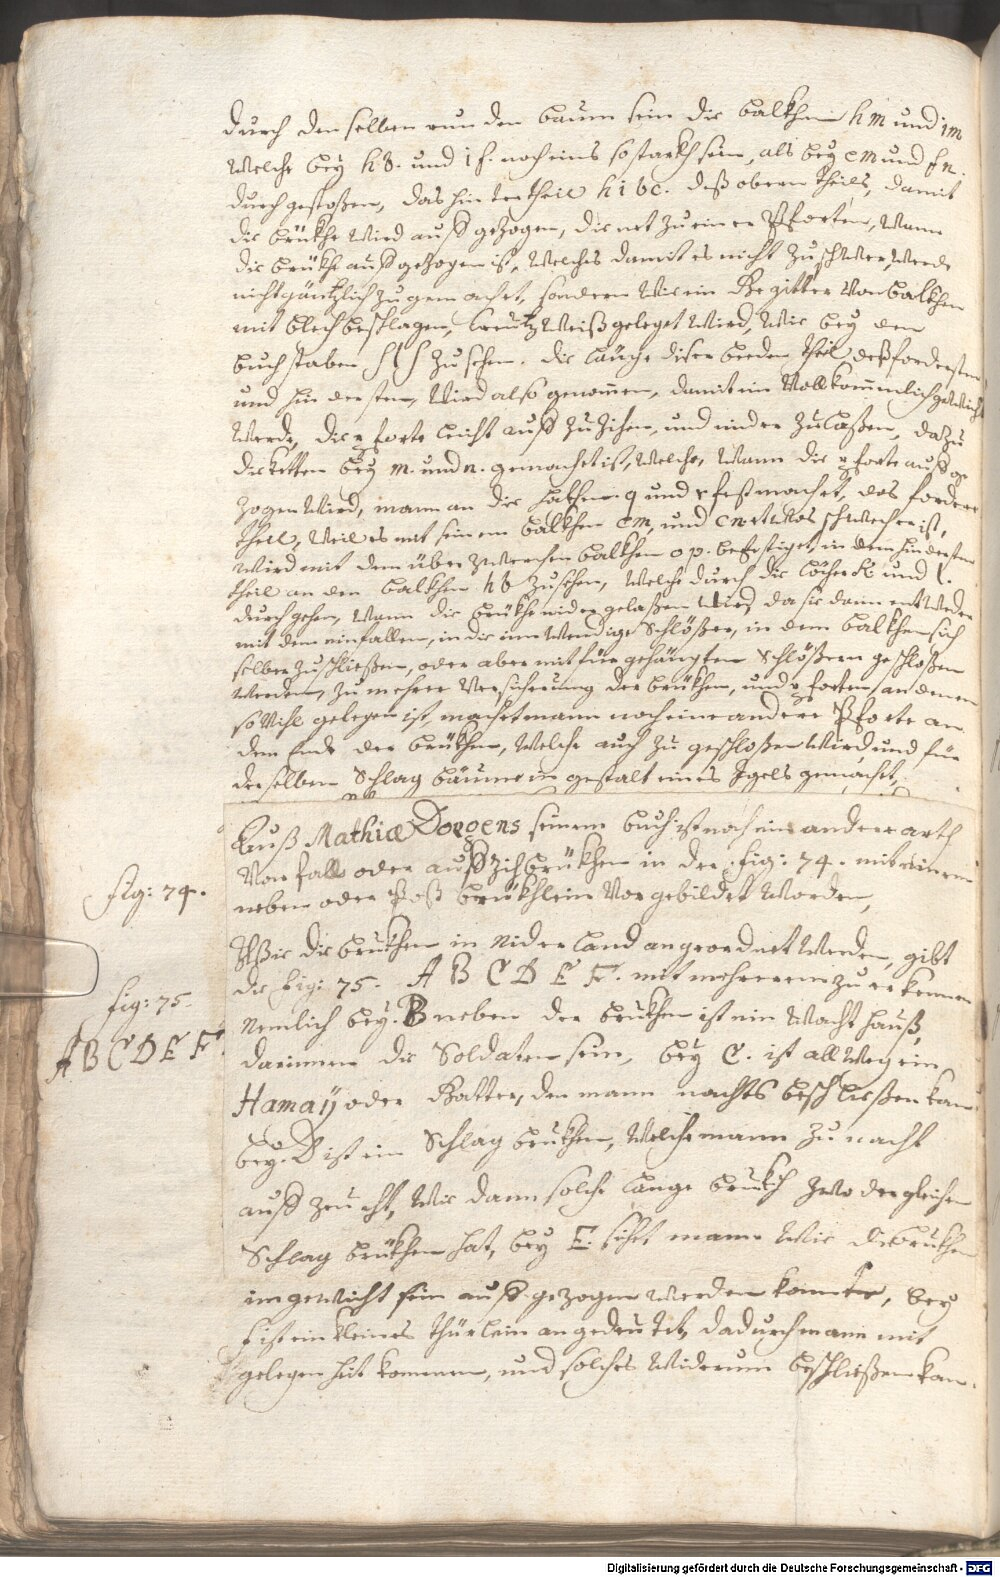 durch den selben runden baum sein die balkhen h m und i m
Welche bey h b. und i f. noch eins so starkh sein, als bey e m und f n.
durch gestoßen, das hinter theil h i b c. deß obern theils, damit
die brükhe wird auß gezogen, dienet zu einer Pforten, Wann
die brükhe auß gezogen ist, Welches damit es nicht zu schwer werde
nicht gäntzlich zugemachet, sondern Wie ein Begitter Von balkhen
mit blech beschlagen, kreutz Weiß geleget Wird, Wie bey dem
buchstaben zu sehen. die länge diser beeden theil, deß fordersten
und hindersten, Wird also genommen, damit ein Vollkommenlich gewicht
Werde, die pforte leicht auß zu zihen, und nider zulaßen, dazu
die ketten bey m. und n. gemachet ist, Welche, Wann die pforte auß ge
zogen Wird, mann an die hakhen q und r fest machet, das forder
theil, Weil es mit seinem balkhen e m, und e n etwas schwecher ist,
Wird mit dem über zwerchen balkhen o p. befestiget, in dem hindersten
theil an den balkhen h b zusehen, Welche durch die löcher k und l.
durch gehen, Wann die brükhe nider gelaßen Wird, da sie dann entweder
mit dem einfallen, in die inwendige Schlößer, in dem balkhen sich
selber zuschließen, oder aber mit für gehängten Schlößern geschloßen
Werden, zu mehrer Versicherung der brükhen, und pforten an denen
so Vihl gelegen ist, machet mann noch eine andere Pforte an
dem Ende der brükhen, Welche auch zu geschloßen Wird, und für
derselben Schlag bäume in gestalt eines Igels gemacht,
Auß Mathiæ Dogens seinem buch ist noch ein andere arth
Von fall oder auß zich brükhen in der Fig: 74. mit einem
neben oder Post brükhlein Vorgebildet Worden,
Fig: 74.
Wie die brukhen in Niderland angeordnet Werden, gibt
die Fig: 75. A B C D E F. mit mehrerem zu erkennen
Fig: 75.
Nemlich bey. B neben der brükhen ist ein Wacht hauß,
A B C D E F.
darinnen die Soldaten sein, bey C. ist allweg ein
Hamaÿ oder Gatter, den mann nachts beschließen kan
bey. D ist ein Schlag brukhen, Welche mann zu nacht
auß zeucht, Wie dann solche lange brukh zwo dergleichen
Schlag brükhen hat, bey E. siht mann Wie die brukhen
im gewicht sein auß gezogen werden konnte, bey
F ist ein kleines thürlein angedeutet, dadurch mann mit
gelegenheit kommen, und solches Widerum beschließen kan.
Digitalisierung gefördert durch die Deutsche Forschungsgemeinschaft - DFG